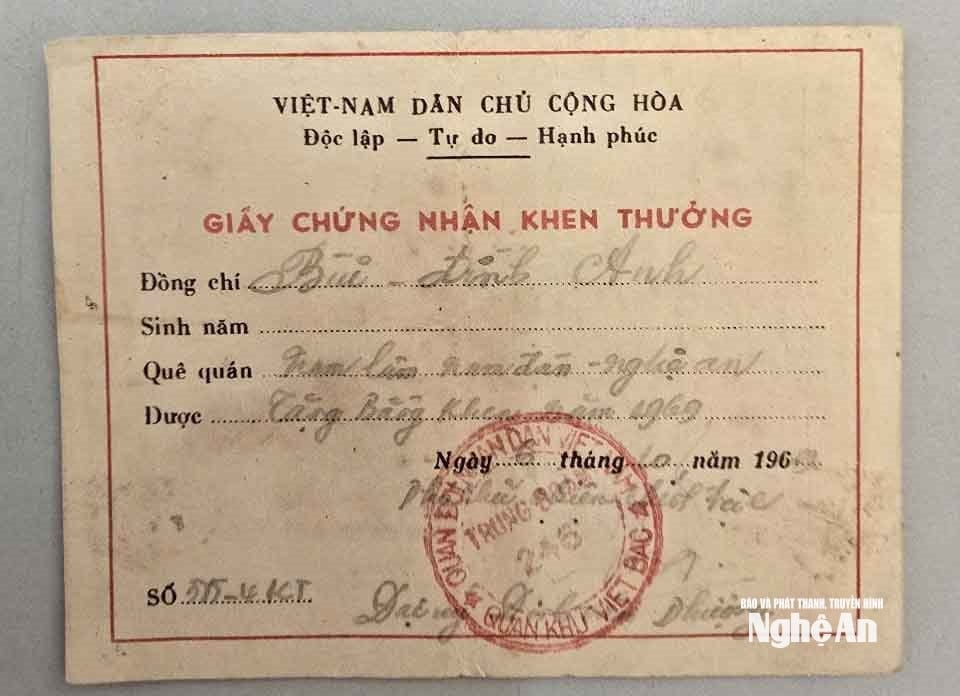 VIỆT-NAM DÂN CHỦ CỘNG HÒA
Độc lập — Tự do — Hạnh phúc
GIẤY CHỨNG NHẬN KHEN THƯỞNG
Đồng chí Bùi - đình Anh
Sinh năm
Quê quán Nam - nghệ an
Được Tặng Bằng Khen năm 1969
Ngày tháng 10 năm 196
QUÂN ĐỘI NHÂN DÂN VIỆT NAM
TRUNG ĐOÀN
246
QUÂN KHU VIỆT BẮC
SỐ
BÁO VÀ PHÁT THANH, TRUYỀN HÌNH
Nghệ An